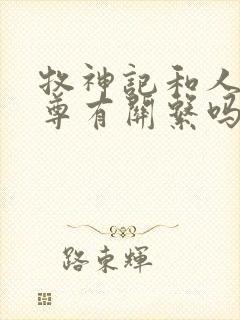 牧神記和人
尊有關繫吗
路東輝